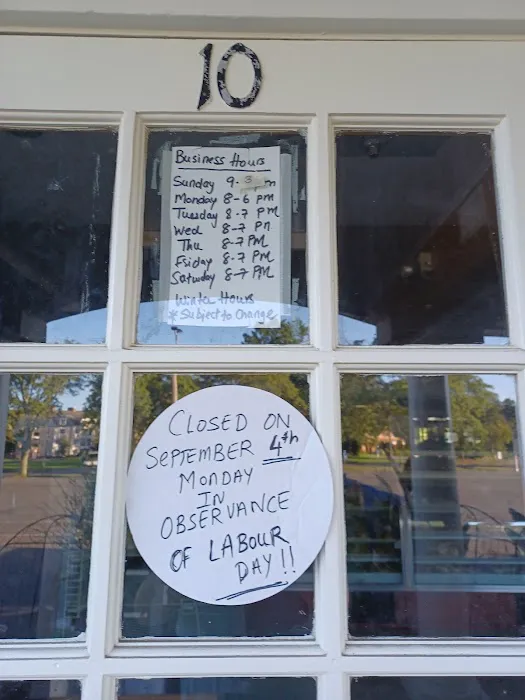 10
Business Hours
Sunday 9-3 pm
Monday 8-6 pm
Tuesday 8-7 PM
Wed 8-7 Pm
Thu 8-7 PM
Friday 8-7 PM
Satuday 8-7 PM
Winter Hours
*Subject to Change
CLOSED ON
SEPTEMBER 4th
MONDAY
IN
OBSERVANCE
OF LABOUR
DAY!!